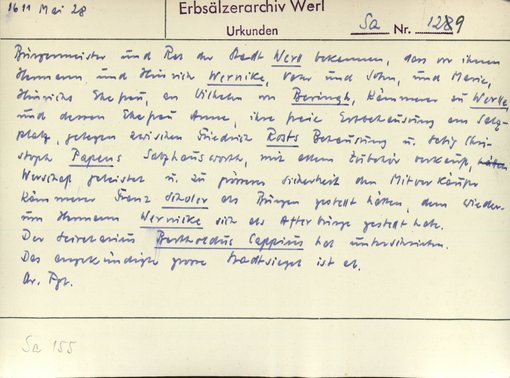 1611 Mai 28
Erbsälzerarchiv Werl
Urkunden Sa Nr. 1289
Bürgermeister und Rat der Stadt Werl bekennen, dass vor ihnen
Hermann und Heinrich Wernike, Vater und Sohn, und Maria,
Heinrichs Ehefrau, an Wilhelm von Beringh, Kämmerer zu Werle,
und dessen Ehefrau Anne, ihre freie Erbbehausung am Salz-
platz, gelegen zwischen Friedrich Rosts Behausung u. Chri-
stoph Papens Salzhaus, mit allem Zubehör verkauft,
Werschaft geleistet u. zu grösserer Sicherheit den Mitverkäufer
Kämmerer Franz als Bürgen gestellt hätten, dem wieder-
um Hermann Wernicke sich als Afterbürge gestellt habe.
Der Secretarius Bertholdus Cappius hat unterschrieben.
Das angekündigte grosse Stadtsiegel ist ab.
Or. Pgt.
Sa 155